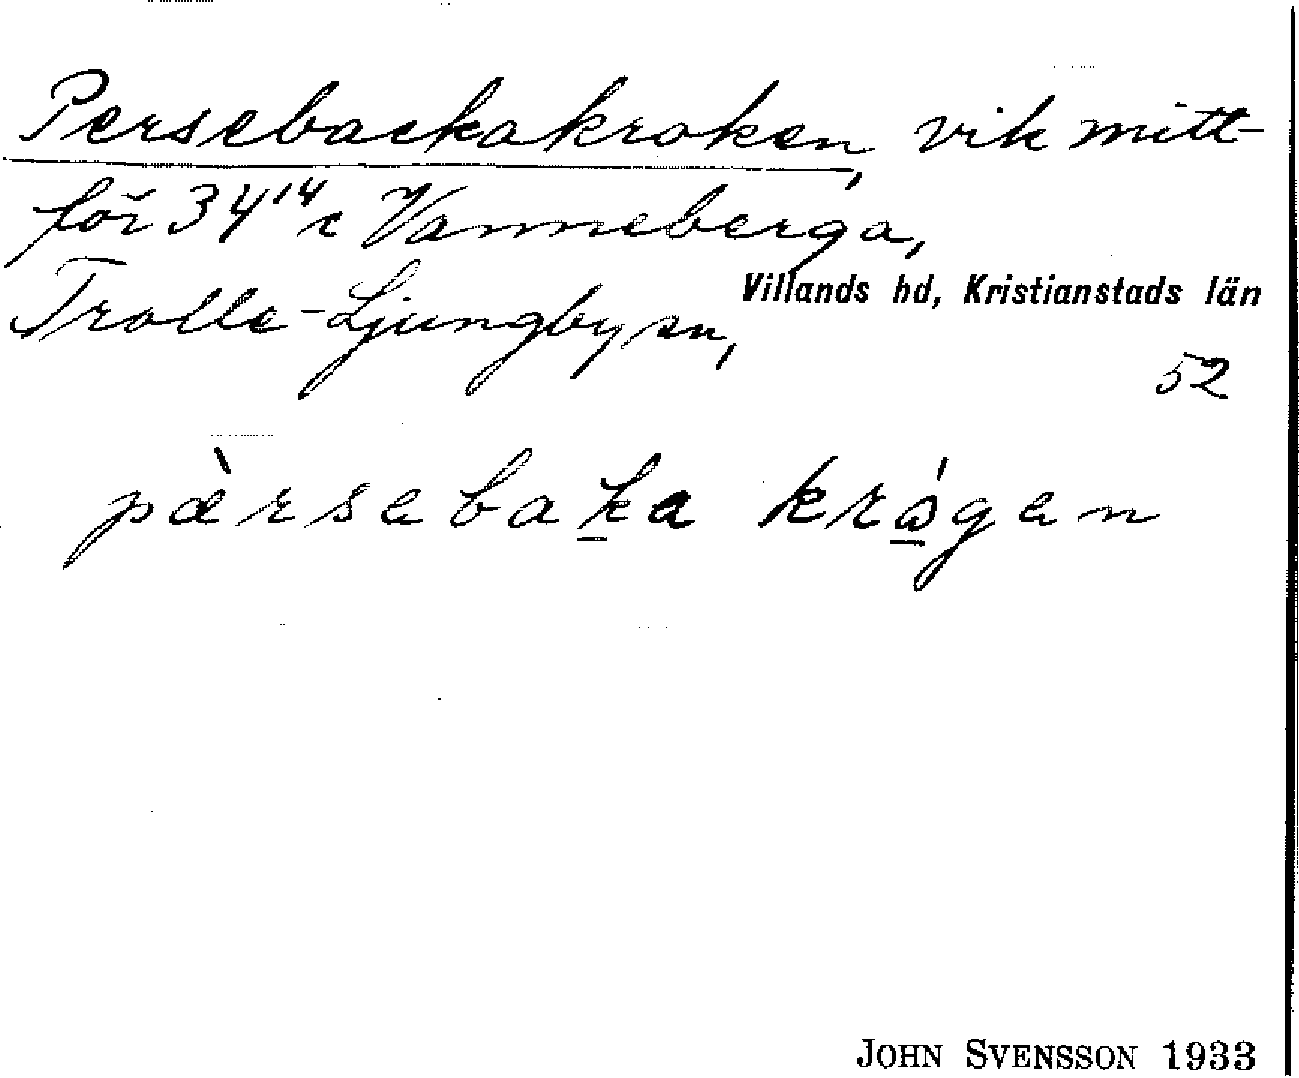 Persebackakroken, vik mitt-
för 34¹⁴ c Vanneberga,
Trolle-Ljungby sn,
Villands hd, Kristianstads län
52
pæ̀rsebaka krǻgen
JOHN SVENSSON 1933